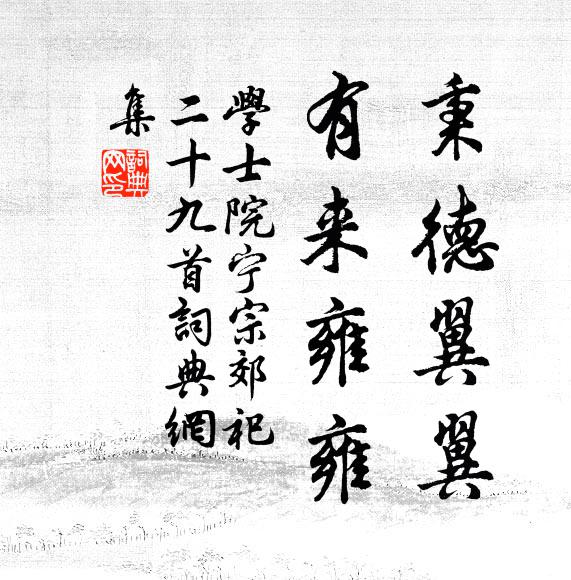 秉德翼翼
有来雍雍
學士院宁宗郊祀
二十九首詞典網
集
詞典
网印